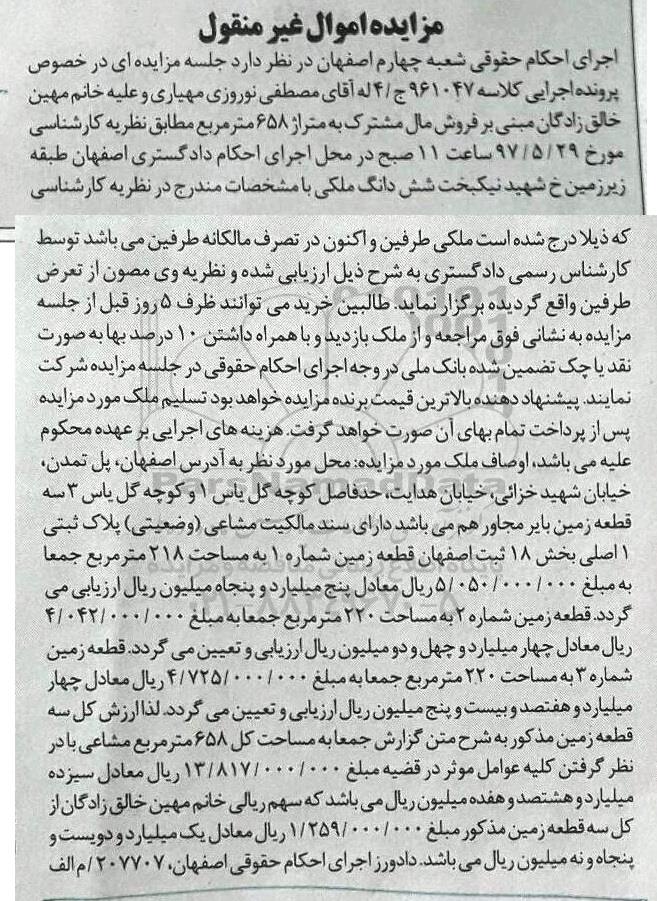 مزایده اموال غیر منقول
اجرای احکام حقوقی شعبه چهارم اصفهان در نظر دارد جلسه مزایده ای در خصوص
پرونده اجرایی کلاسه ۹۶۱۰۴۷ ج/۴ له آقای مصطفی نوروزی مهیاری و علیه خانم مهین
خالق زادگان مبنی بر فروش مال مشترک به متراژ ۶۵۸ مترمربع مطابق نظریه کارشناسی
مورخ ۹۷/۵/۲۹ ساعت ۱۱ صبح در محل اجرای احکام دادگستری اصفهان طبقه
زیرزمین خ شهید نیکبخت شش دانگ ملکی با مشخصات مندرج در نظریه کارشناسی
که ذیلا درج شده است ملکی طرفین و اکنون در تصرف مالکانه طرفین می باشد توسط
کارشناس رسمی دادگستری به شرح ذیل ارزیابی شده و نظریه وی مصون از تعرض
طرفین واقع گردیده برگزار نماید. طالبین خرید می توانند ظرف ۵ روز قبل از جلسه
مزایده به نشانی فوق مراجعه و از ملک بازدید و با همراه داشتن ۱۰ درصد بها به صورت
نقد یا چک تضمین شده بانک ملی در وجه اجرای احکام حقوقی در جلسه مزایده شرکت
نمایند. پیشنهاد دهنده بالاترین قیمت برنده مزایده خواهد بود تسلیم ملک مورد مزایده
پس از پرداخت تمام بهای آن صورت خواهد گرفت. هزینه های اجرایی بر عهده محکوم
علیه می باشد، اوصاف ملک مورد مزایده: محل مورد نظر به آدرس اصفهان، پل تمدن،
خیابان شهید خزائی، خیابان هدایت، حدفاصل کوچه گل یاس ۱ و کوچه گل یاس ۳ سه
قطعه زمین بایر مجاور هم می باشد دارای سند مالکیت مشاعی (وضعیتی) پلاک ثبتی
۱ اصلی بخش ۱۸ ثبت اصفهان قطعه زمین شماره ۱ به مساحت ۲۱۸ مترمربع جمعا
به مبلغ ۵/۰۵۰/۰۰۰/۰۰۰ ریال معادل پنج میلیارد و پنجاه میلیون ریال ارزیابی می
گردد. قطعه زمین شماره ۲ به مساحت ۲۲۰ مترمربع جمعا به مبلغ ۴/۰۴۲/۰۰۰/۰۰۰
ریال معادل چهار میلیارد و چهل و دو میلیون ریال ارزیابی و تعیین می گردد. قطعه زمین
شماره ۳ به مساحت ۲۲۰ مترمربع جمعا به مبلغ ۴/۷۲۵/۰۰۰/۰۰۰ ریال معادل چهار
میلیارد و هفتصد و بیست و پنج میلیون ریال ارزیابی و تعیین می گردد. لذا ارزش کل سه
قطعه زمین مذکور به شرح متن گزارش جمعا به مساحت کل ۶۵۸ مترمربع مشاعی با در
نظر گرفتن کلیه عوامل موثر در قضیه مبلغ ۱۳/۸۱۷/۰۰۰/۰۰۰ ریال معادل سیزده
میلیارد و هشتصد و هفده میلیون ریال می باشد که سهم ریالی خانم مهین خالق زادگان از
کل سه قطعه زمین مذکور مبلغ ۱/۲۵۹/۰۰۰/۰۰۰ ریال معادل یک میلیارد و دویست و
پنجاه و نه میلیون ریال می باشد. دادورز اجرای احکام حقوقی اصفهان، ۲۰۷۷۰۷/م الف
ParsNamadData